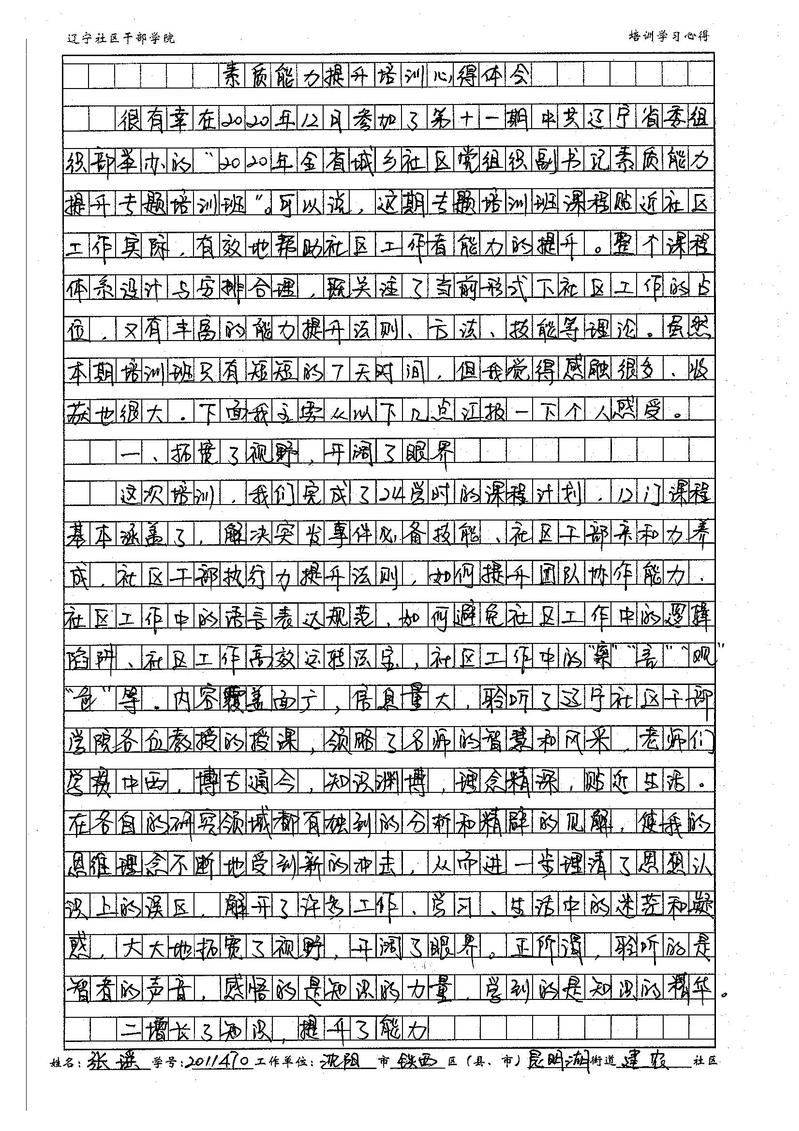 辽宁社区干部学院 培训学习心得
素质能力提升培训心得体会
很有幸在2020年12月参加了第十一期中共辽宁省委组
织部举办的“2020年全省城乡社区党组织副书记素质能力
提升专题培训班”。可以说，这期专题培训班课程贴近社区
工作实际，有效地帮助社区工作者能力的提升。整个课程
体系设计与安排合理，既关注了当前形式下社区工作的占
位，又有丰富的能力提升法则、方法、技能等理论。虽然
本期培训班只有短短的7天时间，但我觉得感触很多、收
获也很大。下面我主要从以下几点汇报一下个人感受。
一、拓宽了视野，开阔了眼界
这次培训，我们完成了24学时的课程计划，12门课程
基本涵盖了，解决突发事件必备技能、社区干部亲和力养
成、社区干部执行力提升法则，如何提升团队协作能力、
社区工作中的语言表达规范、如何避免社区工作中的逻辑
陷阱、社区工作高效运转法宝，社区工作中的“察”“言”“观”
“色”等。内容覆盖面广，信息量大，聆听了辽宁社区干部
学院各位教授的授课，领略了名师的智慧和风采，老师们
学摸中西，博古通今，知识渊博，理念精深，贴近生活。
在各自的研究领域都有独到的分析和精辟的见解，使我的
思维理念不断地受到新的冲击，从而进一步理清了思想认
识上的误区，解开了许多工作、学习、生活中的迷茫和疑
惑，大大地拓宽了视野，开阔了眼界。正所谓，聆听的是
智者的声音，感悟的是知识的力量，学到的是知识的精华。
二增长了知识，提升了能力
姓名：张瑶 学号：2011470 工作单位：沈阳 市 铁西 区（县、市）昆明湖 街道 建农 社区